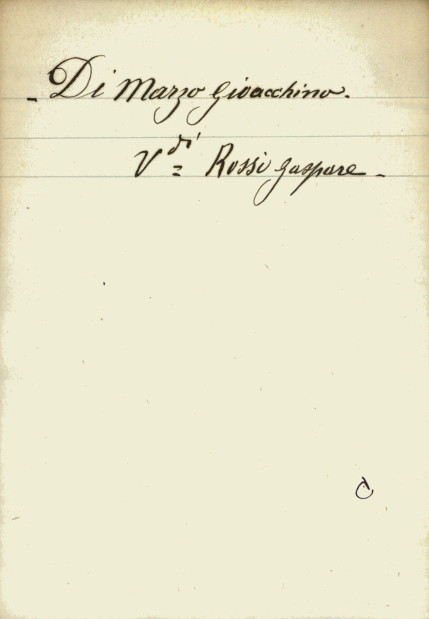 - Di Marzo Gioacchino.
Vdi Rossi Gaspare -